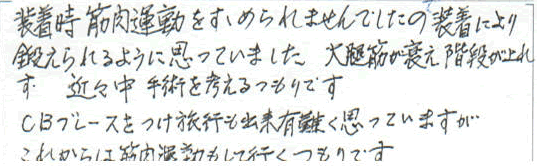 装着時筋肉運動をすゝめられませんでしたの装着により
鍛えられるように思っていました。大腿筋が衰え階段が上れ
す 近々中手術を考えるつもりです
CBブレースをつけ旅行も出来有難く思っていますが
これからは筋肉運動もして行くつもりです